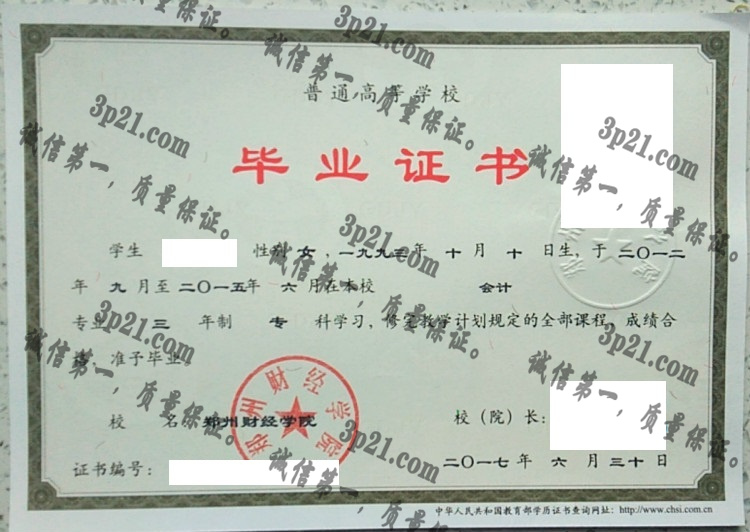 普通高等学校
毕业证书
学生 性别 女，一九九三年 十 月 十 日生，于 二〇一二
年 九 月至 二〇一五年 六 月在本校 会计
专业 三 年制 专 科学习，修完教学计划规定的全部课程，成绩合
格，准予毕业。
校 名：郑州财经学院
校（院）长：
证书编号：
二〇一七年 六 月三十日
中华人民共和国教育部学历证书查询网址：http://www.chsi.com.cn
郑州财经学院
3p21.com
诚信第一，质量保证。
3p21.com
诚信第一，质量保证。
3p21.com
诚信第一，质量保证。
3p21.com
诚信第一，质量保证。
3p21.com
诚信第一，质量保证。
3p21.com
诚信第一，质量保证。
3p21.com
诚信第一，质量保证。